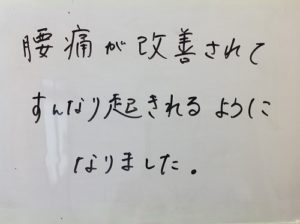 腰痛が改善されて
すんなり起きれるように
なりました.